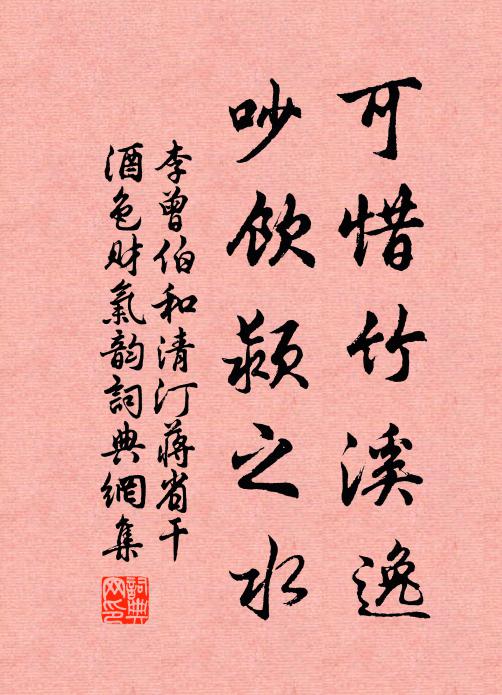 可惜竹溪逸
吵飲潁之水
李曾伯和清汀蔣省干
酒色財氣韵詞典網集